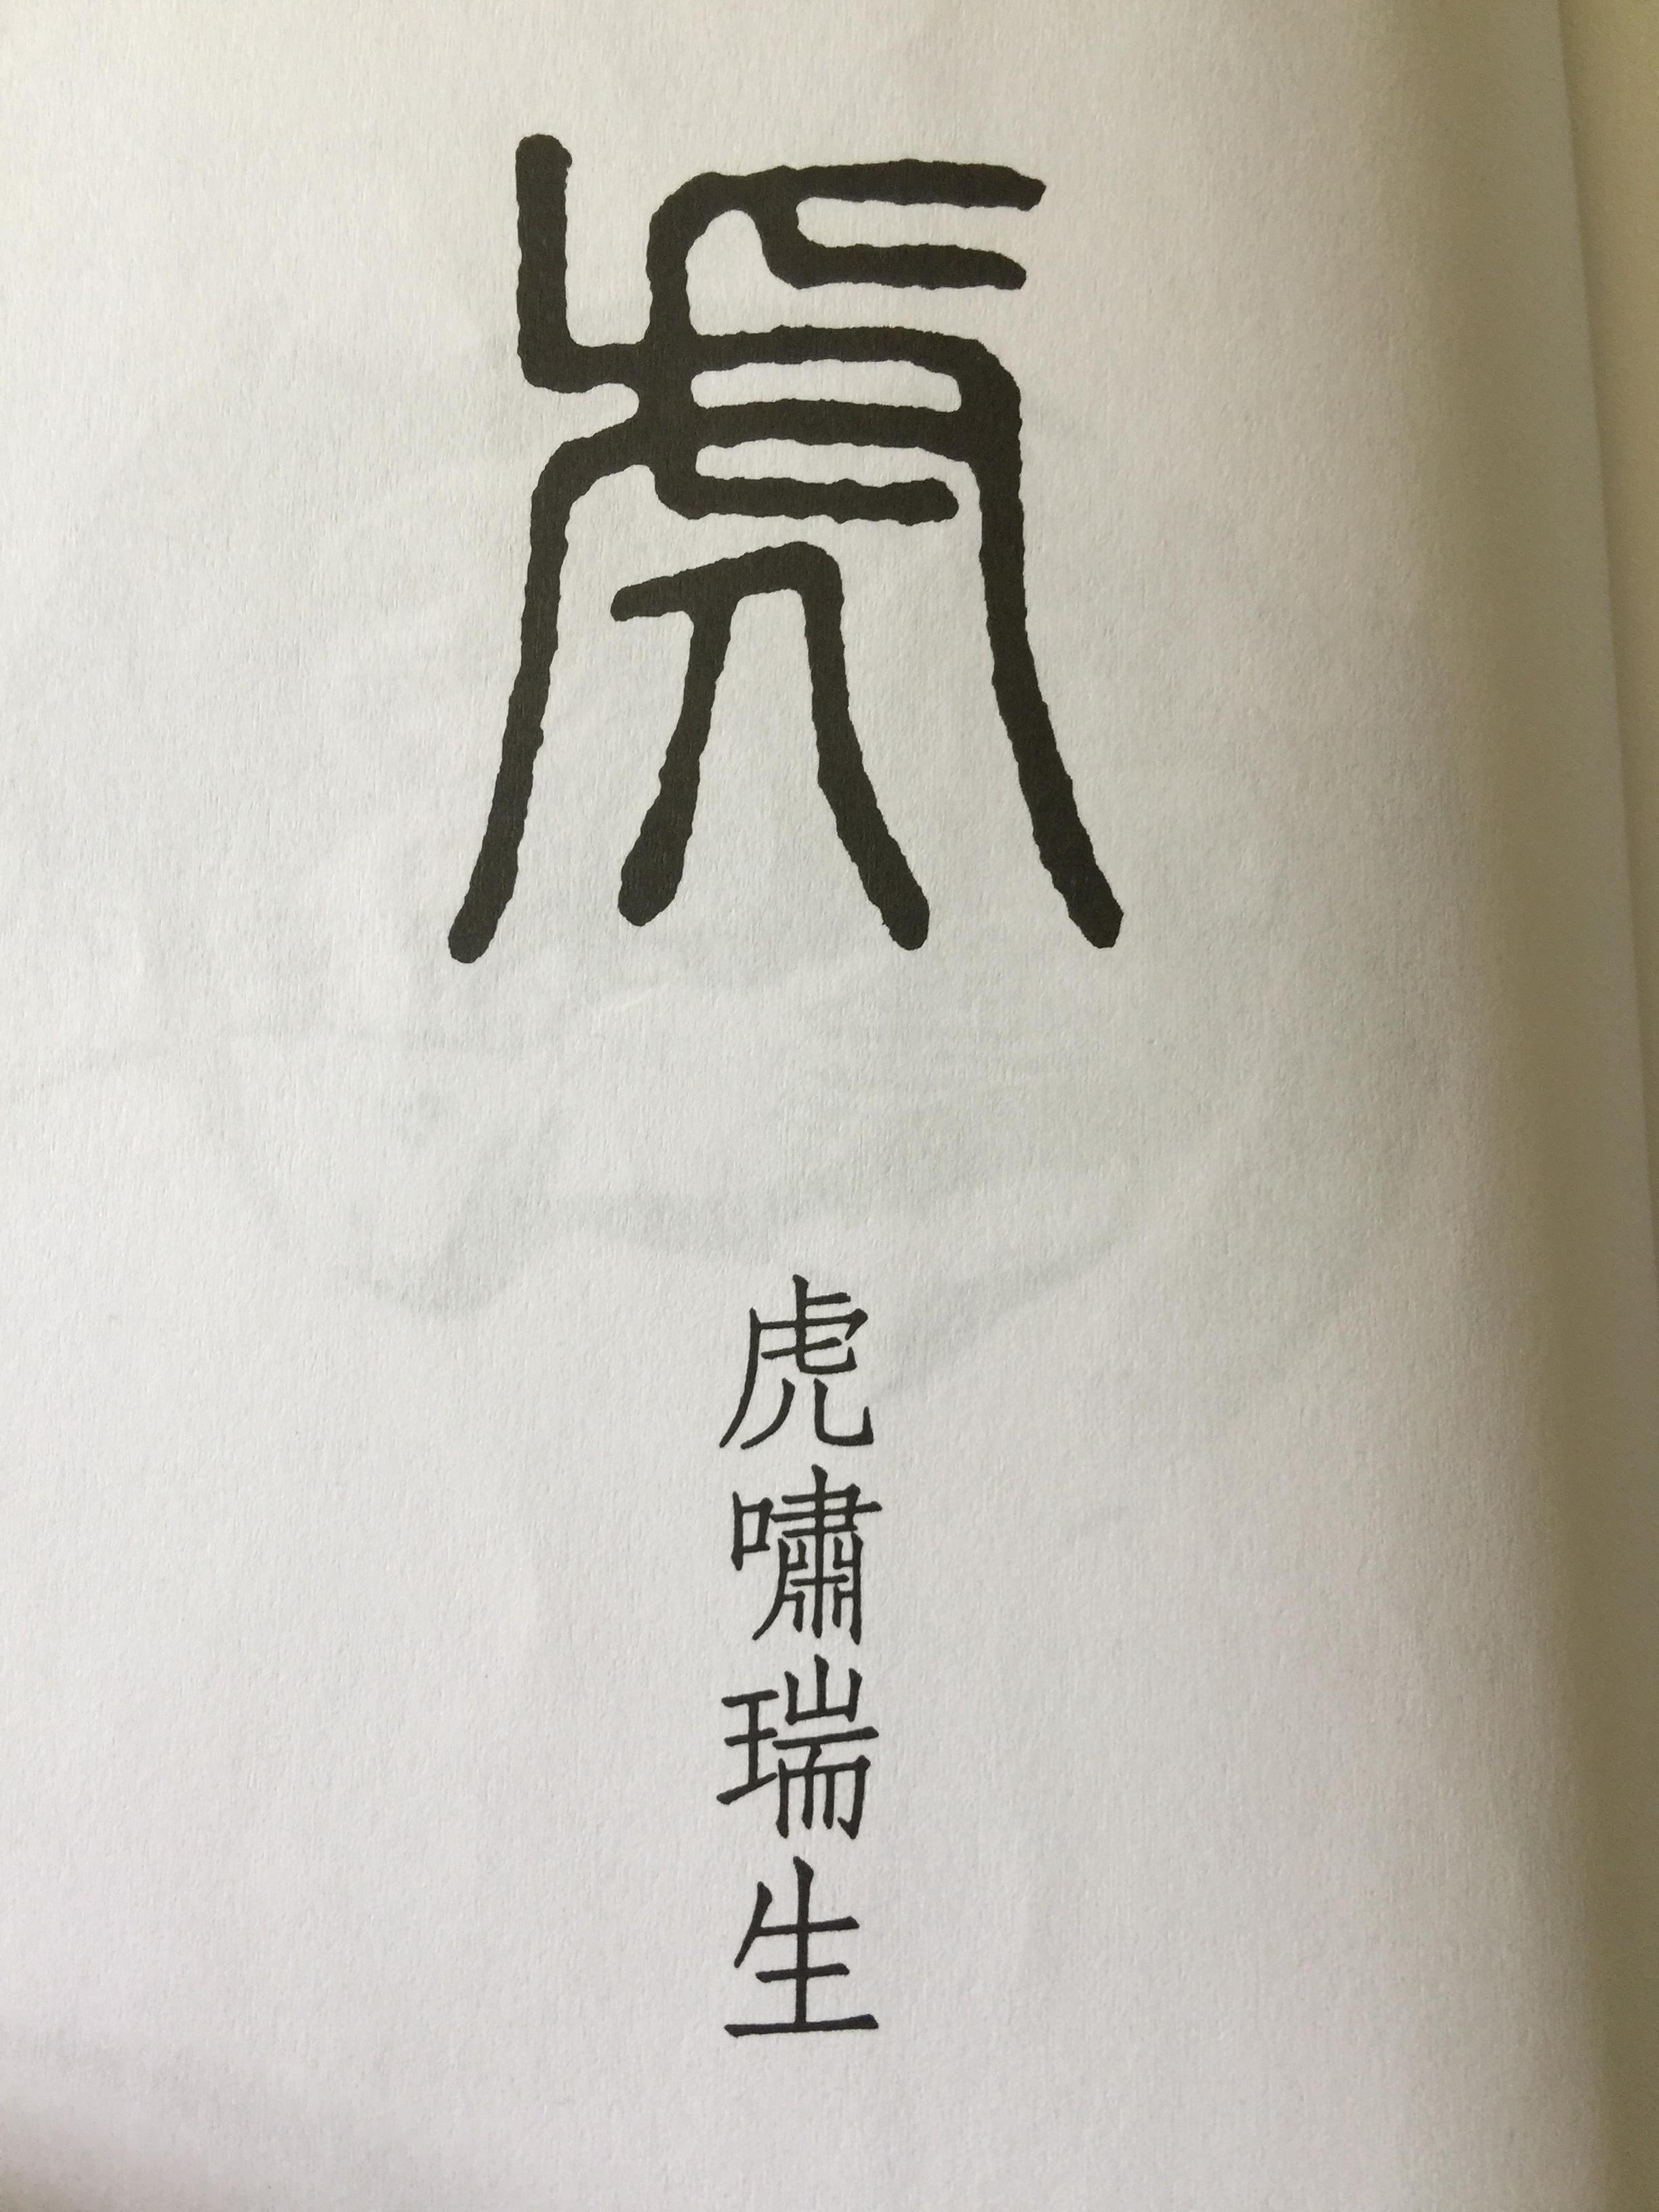 虎
虎嘯瑞生